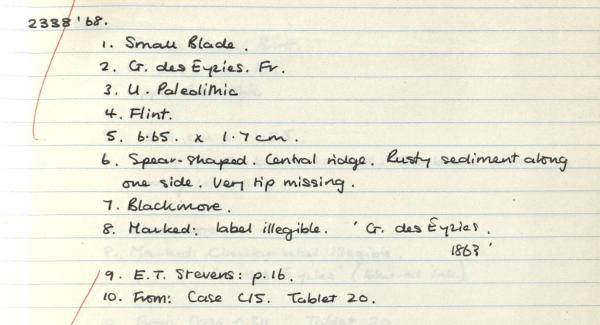 2338'68.
1. Small Blade.
2. G. des Eyzies. Fr.
3. U. Paleolithic
4. Flint.
5. 6.65. x 1.7cm.
6. Spear-shaped. Central ridge. Rusty sediment along
one side. Very tip missing.
7. Blackmore.
8. Marked: label illegible. 'G. des Eyzies.
1863'
9. E.T. Stevens: p.16.
10. From: Case C15. Tablet 20.